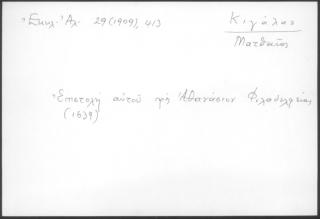 Ἐκκλ. Ἀλ. 29 (1909), 413
Κιγάλας
Ματθαῖος
Ἐπιστολὴ αὐτοῦ πρὸς Ἀθανάσιον Φιλαδελφείας
(1639)